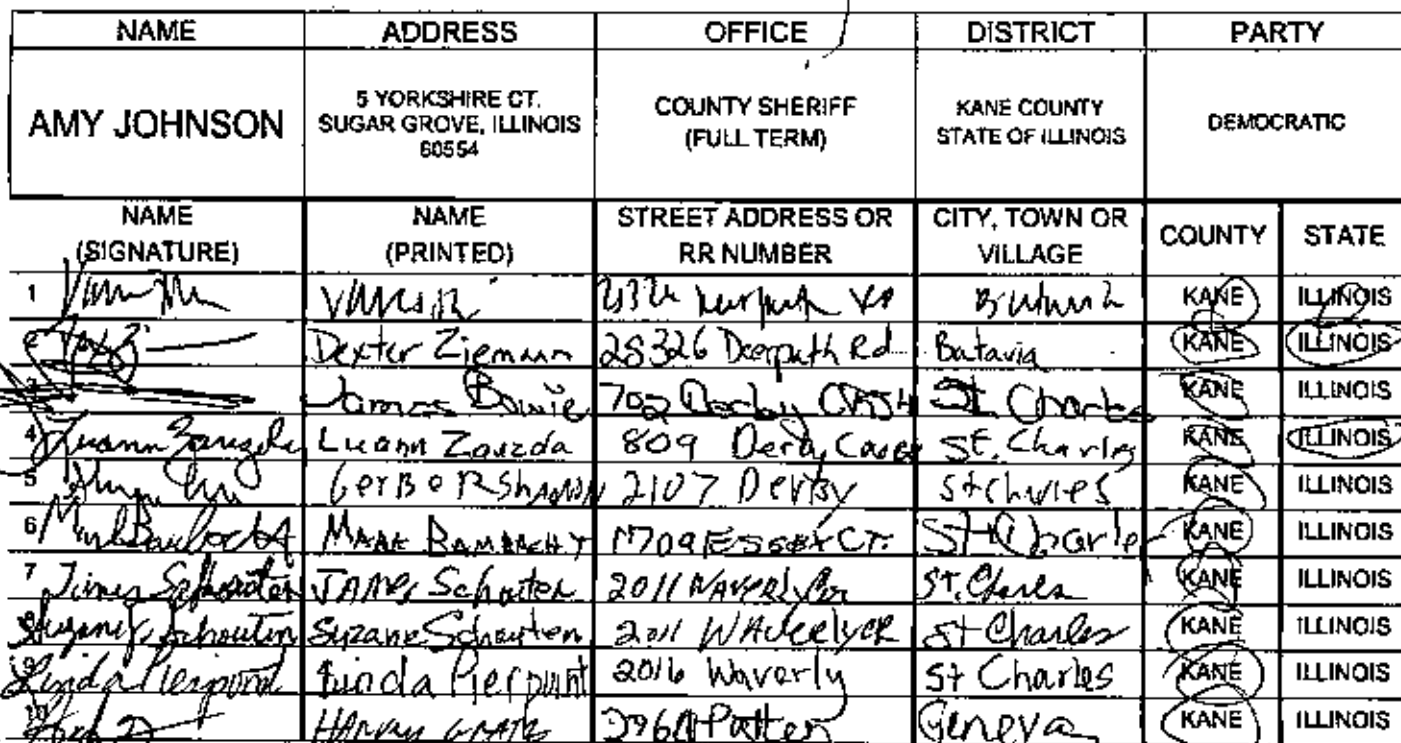 NAME ADDRESS OFFICE DISTRICT PARTY
AMY JOHNSON 5 YORKSHIRE CT. SUGAR GROVE, ILLINOIS 60554 COUNTY SHERIFF (FULL TERM) KANE COUNTY STATE OF ILLINOIS DEMOCRATIC
NAME (SIGNATURE) NAME (PRINTED) STREET ADDRESS OR RR NUMBER CITY, TOWN OR VILLAGE COUNTY STATE
1 KANE ILLINOIS
2 Dexter Ziemann 28326 Deerpath Rd Batavia KANE ILLINOIS
3 James Bowie 702 Derby St. Charles KANE ILLINOIS
4 Luann Zauzda 809 Derby St. Charles KANE ILLINOIS
5 2107 Derby St Charles KANE ILLINOIS
6 Mark 1709 Essex CT. St Charles KANE ILLINOIS
7 James Schouten James Schouten 2011 Waverly St. Charles KANE ILLINOIS
8 Suzanne Schouten Suzane Schouten 2011 St Charles KANE ILLINOIS
9 Linda Pierpoint Linda Pierpoint 2016 Waverly St Charles KANE ILLINOIS
10 Potter Geneva KANE ILLINOIS